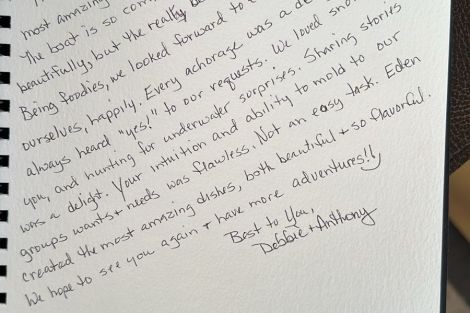 most amazing
The boat is so com
beautifully, but the really be
Being foodies, we looked forward to
ourselves, happily. Every achorage was a de
always heard "yes!" to our requests. We loved sno
you, and hunting for underwater surprises. Sharing stories
was a delight. Your intuition and ability to mold to our
groups wants + needs was flawless. Not an easy task. Eden
created the most amazing dishes, both beautiful + so flavorful.
We hope to see you again + have more adventures!!
Best to You,
Debbie + Anthony